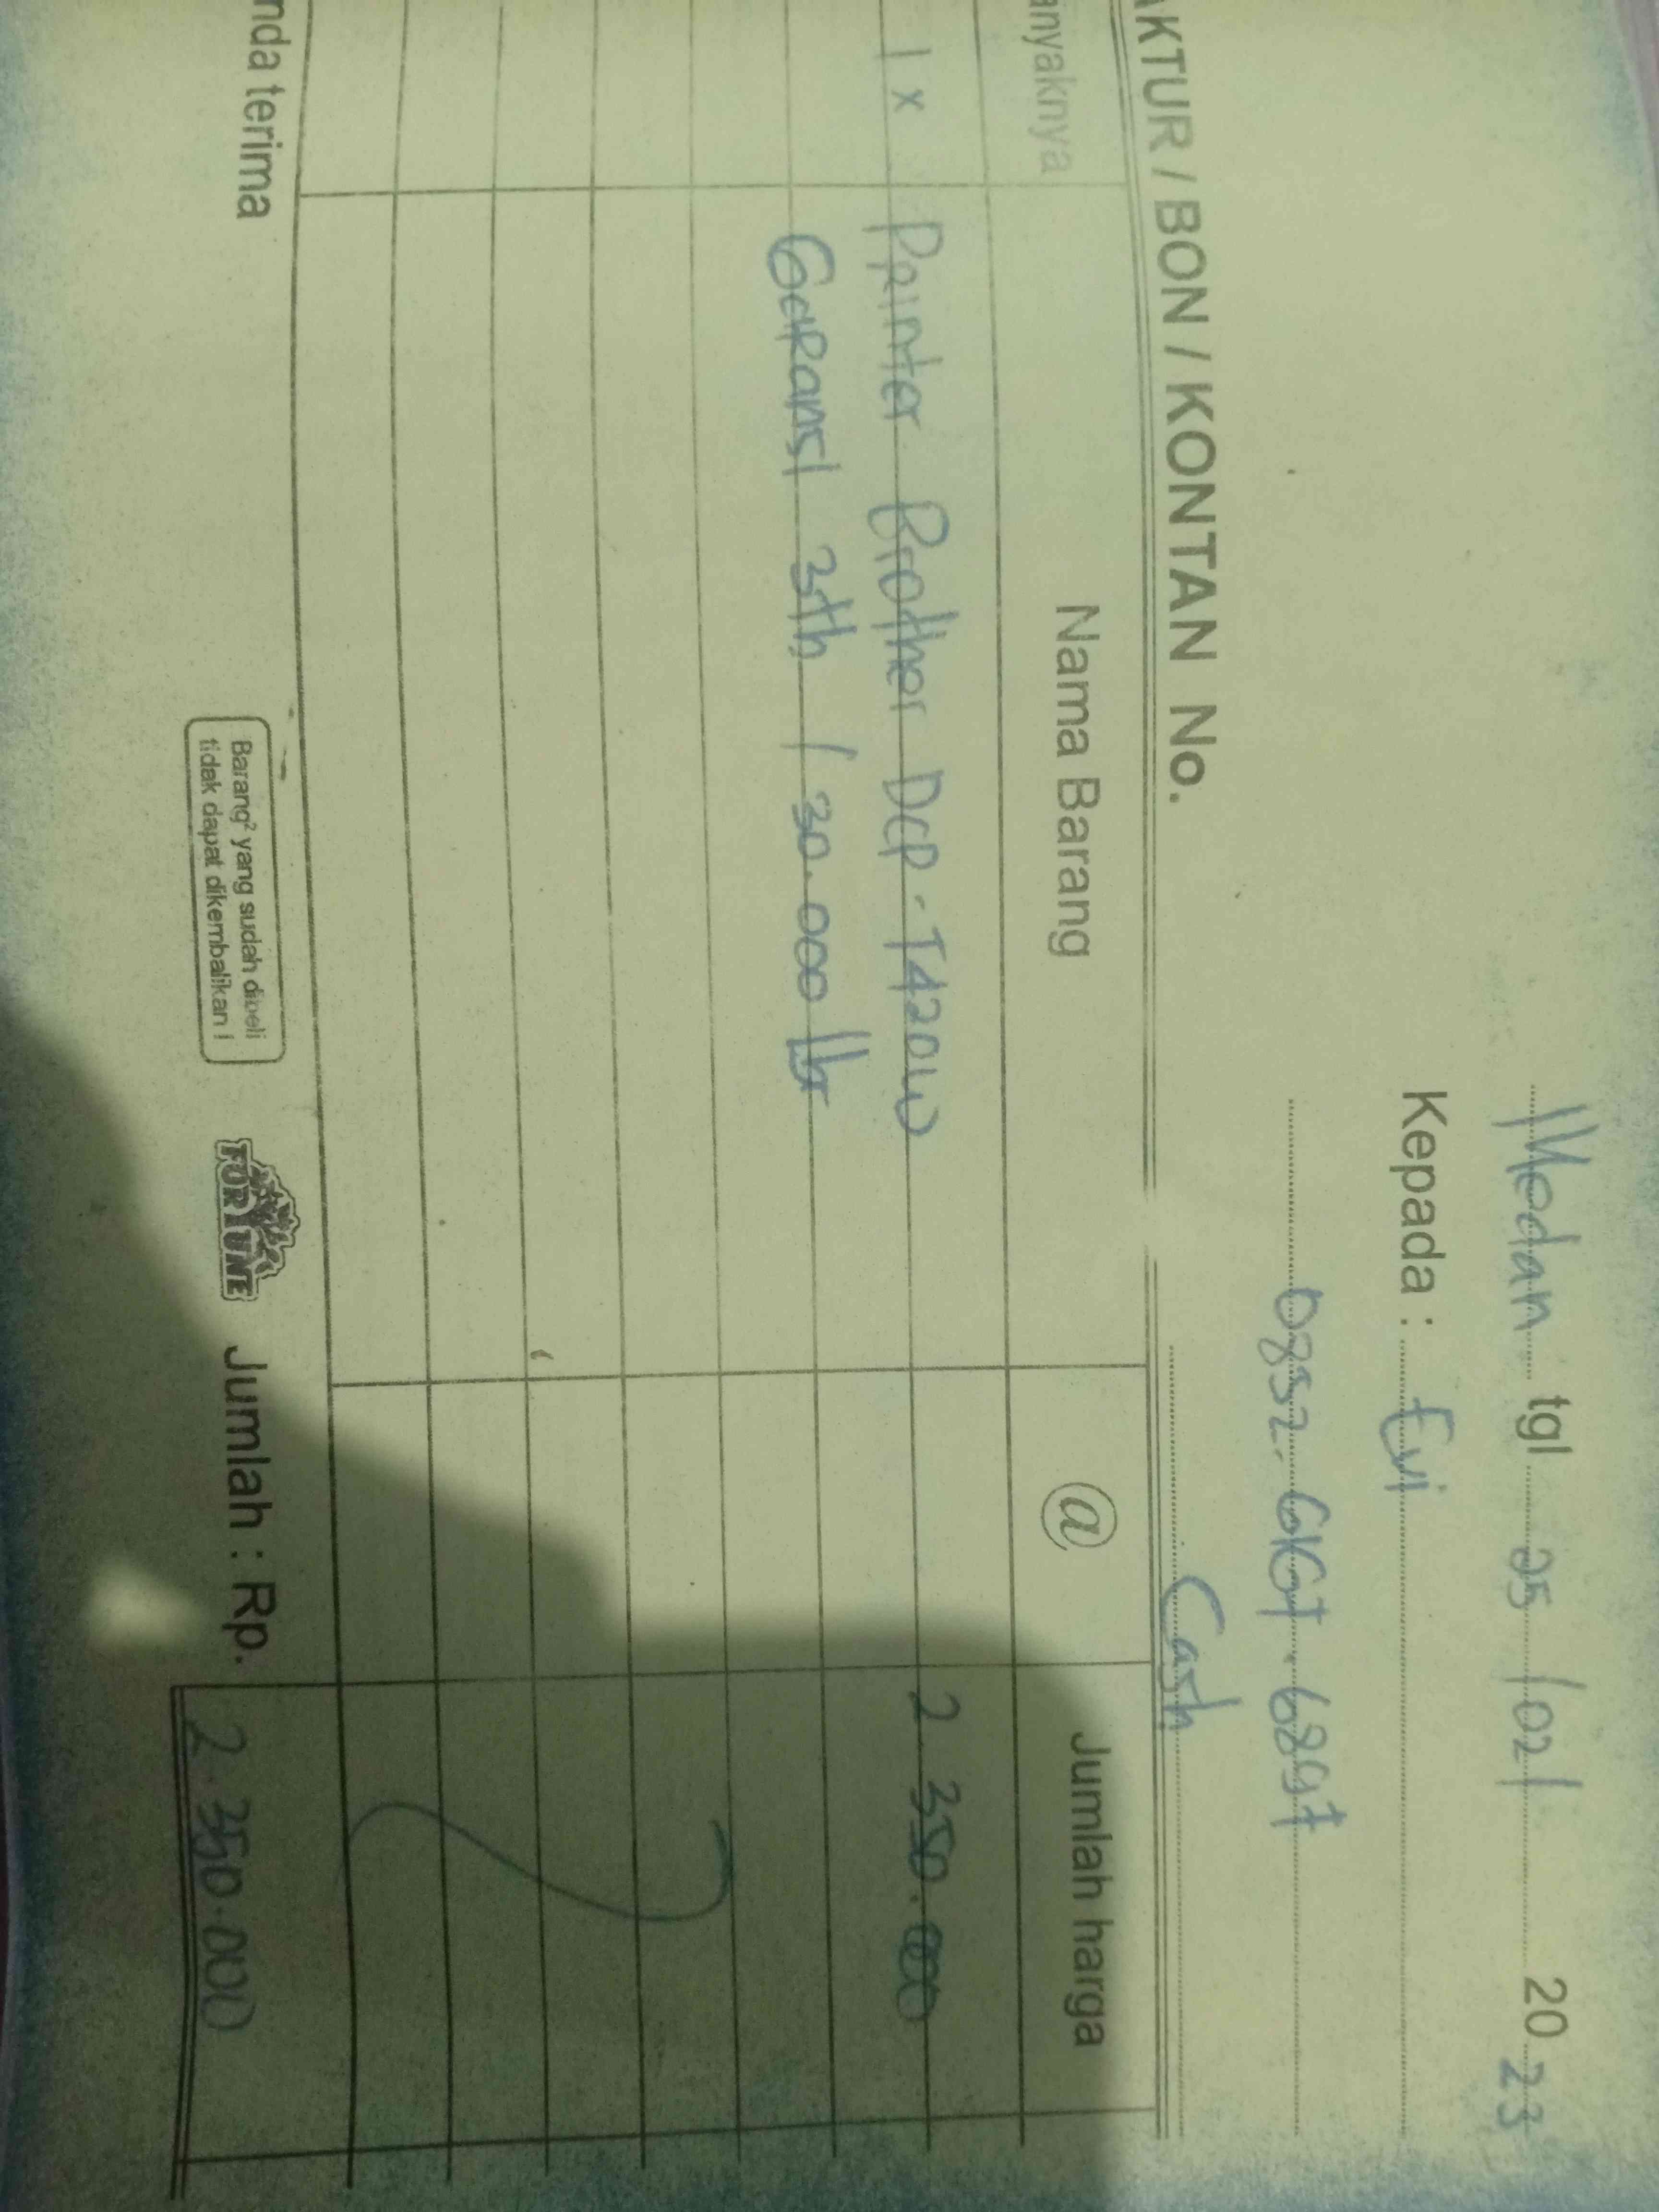 Medan tgl 25 / 02 / 20 23
Kepada : Evi
0852 - 6167 - 6897
AKTUR / BON / KONTAN No.
Cash
anyaknya Nama Barang @ Jumlah harga
1 x Printer Brother Dcp - T420w 2 350.000
Garansi 3th / 30.000 lbr
nda terima
Barang² yang sudah dibeli
tidak dapat dikembalikan !
FORTUNE
Jumlah : Rp. 2.350.000